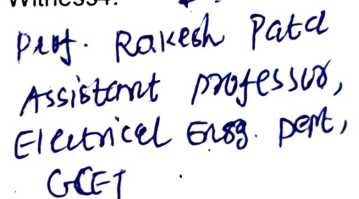 Witness4:
Prof. Rakesh Patel
Assistant professor,
Electrical Engg. Dept,
GCET